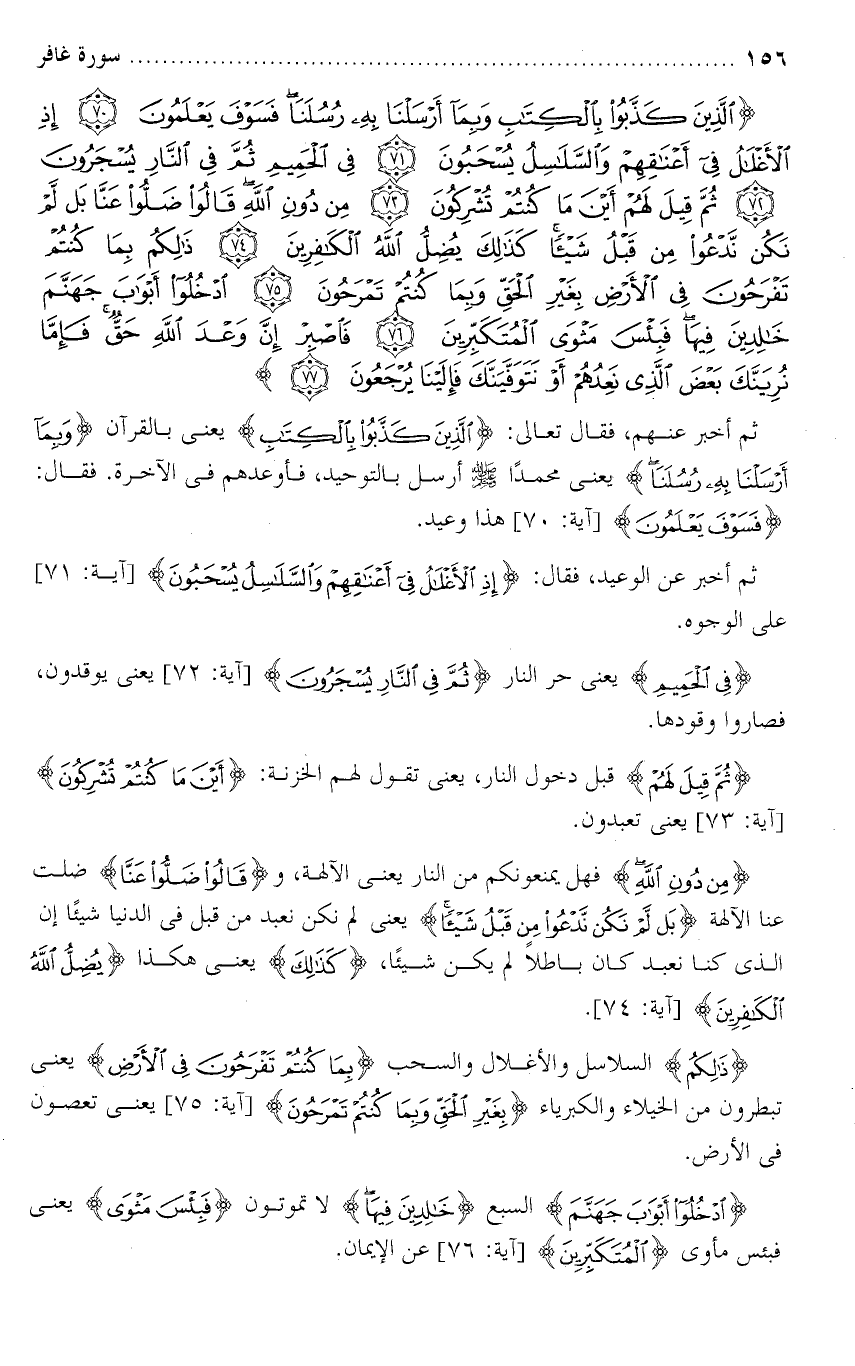 ١٥٦ ........................................................................ سورة غافر
﴿ٱلَّذِينَ كَذَّبُوا۟ بِٱلْكِتَٰبِ وَبِمَآ أَرْسَلْنَا بِهِۦ رُسُلَنَا ۖ فَسَوْفَ يَعْلَمُونَ ٧٠ إِذِ
ٱلْأَغْلَٰلُ فِىٓ أَعْنَٰقِهِمْ وَٱلسَّلَٰسِلُ يُسْحَبُونَ ٧١ فِى ٱلْحَمِيمِ ثُمَّ فِى ٱلنَّارِ يُسْجَرُونَ
٧٢ ثُمَّ قِيلَ لَهُمْ أَيْنَ مَا كُنتُمْ تُشْرِكُونَ ٧٣ مِن دُونِ ٱللَّهِ ۖ قَالُوا۟ ضَلُّوا۟ عَنَّا بَل لَّمْ
نَكُن نَّدْعُوا۟ مِن قَبْلُ شَيْـًٔا ۚ كَذَٰلِكَ يُضِلُّ ٱللَّهُ ٱلْكَٰفِرِينَ ٧٤ ذَٰلِكُم بِمَا كُنتُمْ
تَفْرَحُونَ فِى ٱلْأَرْضِ بِغَيْرِ ٱلْحَقِّ وَبِمَا كُنتُمْ تَمْرَحُونَ ٧٥ ٱدْخُلُوٓا۟ أَبْوَٰبَ جَهَنَّمَ
خَٰلِدِينَ فِيهَا ۖ فَبِئْسَ مَثْوَى ٱلْمُتَكَبِّرِينَ ٧٦ فَٱصْبِرْ إِنَّ وَعْدَ ٱللَّهِ حَقٌّ ۚ فَإِمَّا
نُرِيَنَّكَ بَعْضَ ٱلَّذِى نَعِدُهُمْ أَوْ نَتَوَفَّيَنَّكَ فَإِلَيْنَا يُرْجَعُونَ ٧٧ ﴾
ثم أخبر عنهم، فقال تعالى: ﴿ٱلَّذِينَ كَذَّبُوا۟ بِٱلْكِتَٰبِ﴾ يعنى بالقرآن ﴿وَبِمَآ
أَرْسَلْنَا بِهِۦ رُسُلَنَا ۖ﴾ يعنى محمدًا ﷺ أرسل بالتوحيد، فأوعدهم فى الآخرة. فقال:
﴿فَسَوْفَ يَعْلَمُونَ﴾ [آية: ٧٠] هذا وعيد.
ثم أخبر عن الوعيد، فقال: ﴿إِذِ ٱلْأَغْلَٰلُ فِىٓ أَعْنَٰقِهِمْ وَٱلسَّلَٰسِلُ يُسْحَبُونَ﴾ [آية: ٧١]
على الوجوه.
﴿فِى ٱلْحَمِيمِ﴾ يعنى حر النار ﴿ثُمَّ فِى ٱلنَّارِ يُسْجَرُونَ﴾ [آية: ٧٢] يعنى يوقدون،
فصاروا وقودها.
﴿ثُمَّ قِيلَ لَهُمْ﴾ قبل دخول النار، يعنى تقول لهم الخزنة: ﴿أَيْنَ مَا كُنتُمْ تُشْرِكُونَ﴾
[آية: ٧٣] يعنى تعبدون.
﴿مِن دُونِ ٱللَّهِ ۖ﴾ فهل يمنعونكم من النار يعنى الآلهة، و﴿قَالُوا۟ ضَلُّوا۟ عَنَّا﴾ ضلت
عنا الآلهة ﴿بَل لَّمْ نَكُن نَّدْعُوا۟ مِن قَبْلُ شَيْـًٔا ۚ﴾ يعنى لم نكن نعبد من قبل فى الدنيا شيئًا إن
الذى كنا نعبد كان باطلاً لم يكن شيئًا، ﴿كَذَٰلِكَ﴾ يعنى هكذا ﴿يُضِلُّ ٱللَّهُ
ٱلْكَٰفِرِينَ﴾ [آية: ٧٤].
﴿ذَٰلِكُم﴾ السلاسل والأغلال والسحب ﴿بِمَا كُنتُمْ تَفْرَحُونَ فِى ٱلْأَرْضِ﴾ يعنى
تبطرون من الخيلاء والكبرياء ﴿بِغَيْرِ ٱلْحَقِّ وَبِمَا كُنتُمْ تَمْرَحُونَ﴾ [آية: ٧٥] يعنى تعصون
فى الأرض.
﴿ٱدْخُلُوٓا۟ أَبْوَٰبَ جَهَنَّمَ﴾ السبع ﴿خَٰلِدِينَ فِيهَا ۖ﴾ لا تموتون ﴿فَبِئْسَ مَثْوَى﴾ يعنى
فبئس مأوى ﴿ٱلْمُتَكَبِّرِينَ﴾ [آية: ٧٦] عن الإيمان.